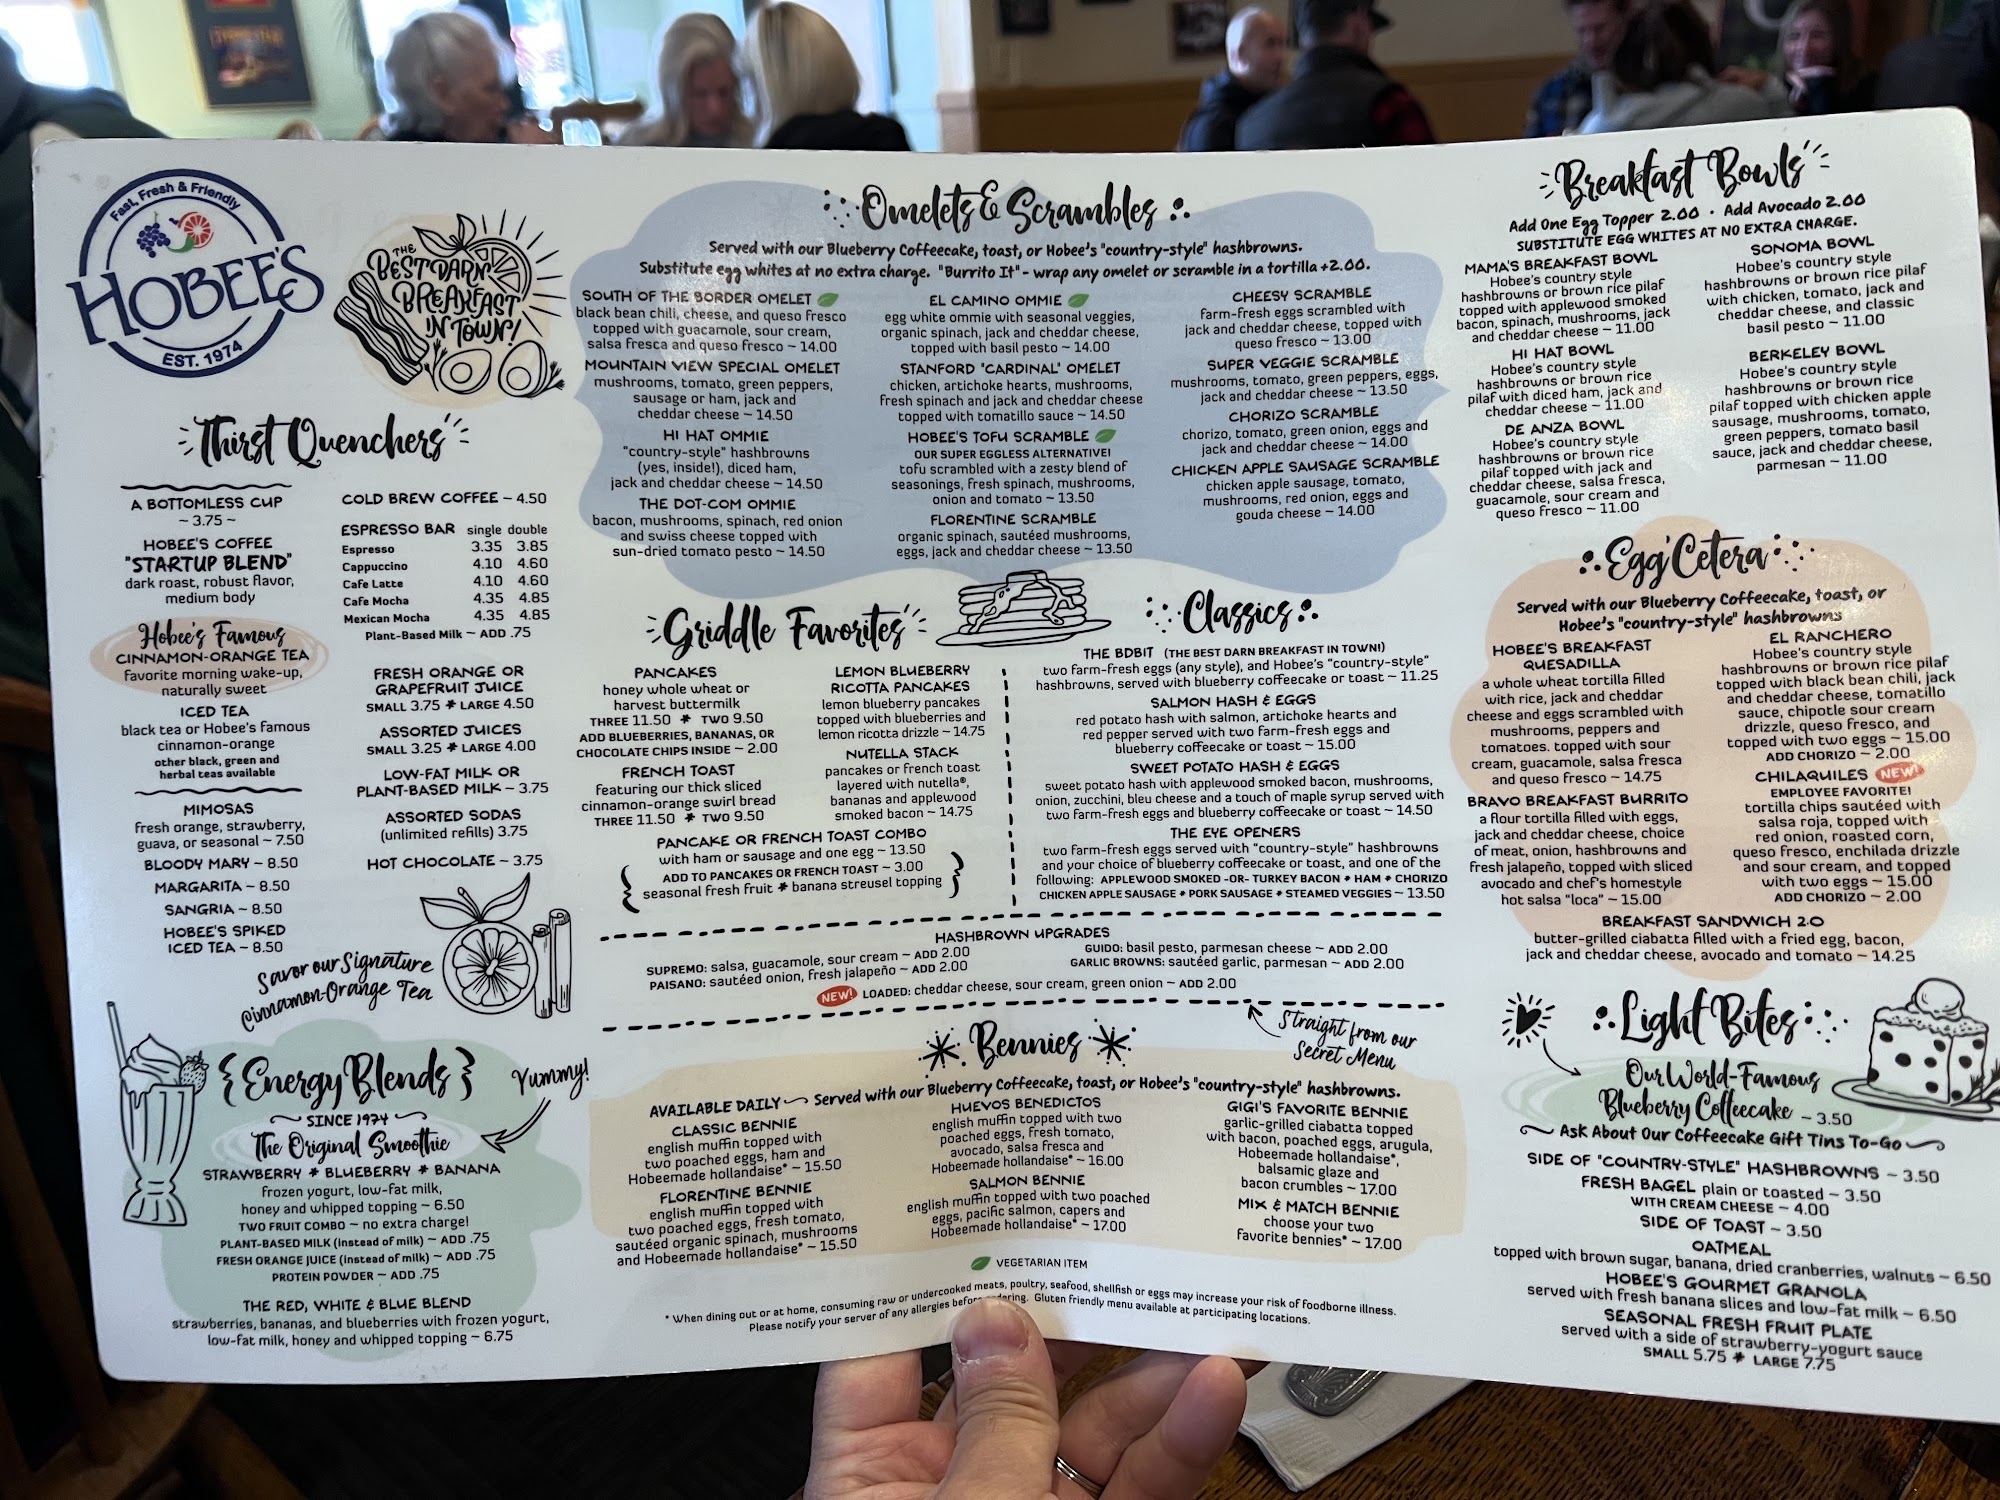 Fast, Fresh & Friendly
HOBEE'S
EST. 1974
THE
BEST DARN
BREAKFAST
IN TOWN!
Thirst Quenchers
A BOTTOMLESS CUP
~ 3.75 ~
HOBEE'S COFFEE
"STARTUP BLEND"
dark roast, robust flavor,
medium body
Hobee's Famous
CINNAMON-ORANGE TEA
favorite morning wake-up,
naturally sweet
ICED TEA
black tea or Hobee's famous
cinnamon-orange
other black, green and
herbal teas available
MIMOSAS
fresh orange, strawberry,
guava, or seasonal ~ 7.50
BLOODY MARY ~ 8.50
MARGARITA ~ 8.50
SANGRIA ~ 8.50
HOBEE'S SPIKED
ICED TEA ~ 8.50
COLD BREW COFFEE ~ 4.50
ESPRESSO BAR single double
Espresso 3.35 3.85
Cappuccino 4.10 4.60
Cafe Latte 4.10 4.60
Cafe Mocha 4.35 4.85
Mexican Mocha 4.35 4.85
Plant-Based Milk ~ ADD .75
FRESH ORANGE OR
GRAPEFRUIT JUICE
SMALL 3.75 * LARGE 4.50
ASSORTED JUICES
SMALL 3.25 * LARGE 4.00
LOW-FAT MILK OR
PLANT-BASED MILK ~ 3.75
ASSORTED SODAS
(unlimited refills) 3.75
HOT CHOCOLATE ~ 3.75
Savor our Signature
Cinnamon-Orange Tea
{ Energy Blends }
Yummy!
SINCE 1974
The Original Smoothie
STRAWBERRY * BLUEBERRY * BANANA
frozen yogurt, low-fat milk,
honey and whipped topping ~ 6.50
TWO FRUIT COMBO ~ no extra charge!
PLANT-BASED MILK (instead of milk) ~ ADD .75
FRESH ORANGE JUICE (instead of milk) ~ ADD .75
PROTEIN POWDER ~ ADD .75
THE RED, WHITE & BLUE BLEND
strawberries, bananas, and blueberries with frozen yogurt,
low-fat milk, honey and whipped topping ~ 6.75
Omelets & Scrambles
Served with our Blueberry Coffeecake, toast, or Hobee's "country-style" hashbrowns.
Substitute egg whites at no extra charge. "Burrito It" - wrap any omelet or scramble in a tortilla +2.00.
SOUTH OF THE BORDER OMELET
black bean chili, cheese, and queso fresco
topped with guacamole, sour cream,
salsa fresca and queso fresco ~ 14.00
MOUNTAIN VIEW SPECIAL OMELET
mushrooms, tomato, green peppers,
sausage or ham, jack and
cheddar cheese ~ 14.50
HI HAT OMMIE
"country-style" hashbrowns
(yes, inside!), diced ham,
jack and cheddar cheese ~ 14.50
THE DOT-COM OMMIE
bacon, mushrooms, spinach, red onion
and swiss cheese topped with
sun-dried tomato pesto ~ 14.50
EL CAMINO OMMIE
egg white ommie with seasonal veggies,
organic spinach, jack and cheddar cheese,
topped with basil pesto ~ 14.00
STANFORD "CARDINAL" OMELET
chicken, artichoke hearts, mushrooms,
fresh spinach and jack and cheddar cheese
topped with tomatillo sauce ~ 14.50
HOBEE'S TOFU SCRAMBLE
OUR SUPER EGGLESS ALTERNATIVE!
tofu scrambled with a zesty blend of
seasonings, fresh spinach, mushrooms,
onion and tomato ~ 13.50
FLORENTINE SCRAMBLE
organic spinach, sautéed mushrooms,
eggs, jack and cheddar cheese ~ 13.50
CHEESY SCRAMBLE
farm-fresh eggs scrambled with
jack and cheddar cheese, topped with
queso fresco ~ 13.00
SUPER VEGGIE SCRAMBLE
mushrooms, tomato, green peppers, eggs,
jack and cheddar cheese ~ 13.50
CHORIZO SCRAMBLE
chorizo, tomato, green onion, eggs and
jack and cheddar cheese ~ 14.00
CHICKEN APPLE SAUSAGE SCRAMBLE
chicken apple sausage, tomato,
mushrooms, red onion, eggs and
gouda cheese ~ 14.00
Griddle Favorites
PANCAKES
honey whole wheat or
harvest buttermilk
THREE 11.50 * TWO 9.50
ADD BLUEBERRIES, BANANAS, OR
CHOCOLATE CHIPS INSIDE ~ 2.00
FRENCH TOAST
featuring our thick sliced
cinnamon-orange swirl bread
THREE 11.50 * TWO 9.50
LEMON BLUEBERRY
RICOTTA PANCAKES
lemon blueberry pancakes
topped with blueberries and
lemon ricotta drizzle ~ 14.75
NUTELLA STACK
pancakes or french toast
layered with nutella®,
bananas and applewood
smoked bacon ~ 14.75
PANCAKE OR FRENCH TOAST COMBO
with ham or sausage and one egg ~ 13.50
ADD TO PANCAKES OR FRENCH TOAST ~ 3.00
seasonal fresh fruit * banana streusel topping
Classics
THE BDBIT (THE BEST DARN BREAKFAST IN TOWN!)
two farm-fresh eggs (any style), and Hobee's "country-style"
hashbrowns, served with blueberry coffeecake or toast ~ 11.25
SALMON HASH & EGGS
red potato hash with salmon, artichoke hearts and
red pepper served with two farm-fresh eggs and
blueberry coffeecake or toast ~ 15.00
SWEET POTATO HASH & EGGS
sweet potato hash with applewood smoked bacon, mushrooms,
onion, zucchini, bleu cheese and a touch of maple syrup served with
two farm-fresh eggs and blueberry coffeecake or toast ~ 14.50
THE EYE OPENERS
two farm-fresh eggs served with "country-style" hashbrowns
and your choice of blueberry coffeecake or toast, and one of the
following: APPLEWOOD SMOKED -OR- TURKEY BACON * HAM * CHORIZO
CHICKEN APPLE SAUSAGE * PORK SAUSAGE * STEAMED VEGGIES ~ 13.50
HASHBROWN UPGRADES
SUPREMO: salsa, guacamole, sour cream ~ ADD 2.00
PAISANO: sautéed onion, fresh jalapeño ~ ADD 2.00
GUIDO: basil pesto, parmesan cheese ~ ADD 2.00
GARLIC BROWNS: sautéed garlic, parmesan ~ ADD 2.00
NEW! LOADED: cheddar cheese, sour cream, green onion ~ ADD 2.00
Straight from our
Secret Menu
Bennies
AVAILABLE DAILY Served with our Blueberry Coffeecake, toast, or Hobee's "country-style" hashbrowns.
CLASSIC BENNIE
english muffin topped with
two poached eggs, ham and
Hobeemade hollandaise* ~ 15.50
FLORENTINE BENNIE
english muffin topped with
two poached eggs, fresh tomato,
sautéed organic spinach, mushrooms
and Hobeemade hollandaise* ~ 15.50
HUEVOS BENEDICTOS
english muffin topped with two
poached eggs, fresh tomato,
avocado, salsa fresca and
Hobeemade hollandaise* ~ 16.00
SALMON BENNIE
english muffin topped with two poached
eggs, pacific salmon, capers and
Hobeemade hollandaise* ~ 17.00
GIGI'S FAVORITE BENNIE
garlic-grilled ciabatta topped
with bacon, poached eggs, arugula,
Hobeemade hollandaise*,
balsamic glaze and
bacon crumbles ~ 17.00
MIX & MATCH BENNIE
choose your two
favorite bennies* ~ 17.00
VEGETARIAN ITEM
* When dining out or at home, consuming raw or undercooked meats, poultry, seafood, shellfish or eggs may increase your risk of foodborne illness.
Please notify your server of any allergies before ordering. Gluten friendly menu available at participating locations.
Breakfast Bowls
Add One Egg Topper 2.00 • Add Avocado 2.00
SUBSTITUTE EGG WHITES AT NO EXTRA CHARGE.
MAMA'S BREAKFAST BOWL
Hobee's country style
hashbrowns or brown rice pilaf
topped with applewood smoked
bacon, spinach, mushrooms, jack
and cheddar cheese ~ 11.00
HI HAT BOWL
Hobee's country style
hashbrowns or brown rice
pilaf with diced ham, jack and
cheddar cheese ~ 11.00
DE ANZA BOWL
Hobee's country style
hashbrowns or brown rice
pilaf topped with jack and
cheddar cheese, salsa fresca,
guacamole, sour cream and
queso fresco ~ 11.00
SONOMA BOWL
Hobee's country style
hashbrowns or brown rice pilaf
with chicken, tomato, jack and
cheddar cheese, and classic
basil pesto ~ 11.00
BERKELEY BOWL
Hobee's country style
hashbrowns or brown rice
pilaf topped with chicken apple
sausage, mushrooms, tomato,
green peppers, tomato basil
sauce, jack and cheddar cheese,
parmesan ~ 11.00
Egg'Cetera
Served with our Blueberry Coffeecake, toast, or
Hobee's "country-style" hashbrowns
HOBEE'S BREAKFAST
QUESADILLA
a whole wheat tortilla filled
with rice, jack and cheddar
cheese and eggs scrambled with
mushrooms, peppers and
tomatoes. topped with sour
cream, guacamole, salsa fresca
and queso fresco ~ 14.75
BRAVO BREAKFAST BURRITO
a flour tortilla filled with eggs,
jack and cheddar cheese, choice
of meat, onion, hashbrowns and
fresh jalapeño, topped with sliced
avocado and chef's homestyle
hot salsa "loca" ~ 15.00
EL RANCHERO
Hobee's country style
hashbrowns or brown rice pilaf
topped with black bean chili, jack
and cheddar cheese, tomatillo
sauce, chipotle sour cream
drizzle, queso fresco, and
topped with two eggs ~ 15.00
ADD CHORIZO ~ 2.00
CHILAQUILES NEW!
EMPLOYEE FAVORITE!
tortilla chips sautéed with
salsa roja, topped with
red onion, roasted corn,
queso fresco, enchilada drizzle
and sour cream, and topped
with two eggs ~ 15.00
ADD CHORIZO ~ 2.00
BREAKFAST SANDWICH 2.0
butter-grilled ciabatta filled with a fried egg, bacon,
jack and cheddar cheese, avocado and tomato ~ 14.25
Light Bites
Our World-Famous
Blueberry Coffeecake ~ 3.50
Ask About Our Coffeecake Gift Tins To-Go
SIDE OF "COUNTRY-STYLE" HASHBROWNS ~ 3.50
FRESH BAGEL plain or toasted ~ 3.50
WITH CREAM CHEESE ~ 4.00
SIDE OF TOAST ~ 3.50
OATMEAL
topped with brown sugar, banana, dried cranberries, walnuts ~ 6.50
HOBEE'S GOURMET GRANOLA
served with fresh banana slices and low-fat milk ~ 6.50
SEASONAL FRESH FRUIT PLATE
served with a side of strawberry-yogurt sauce
SMALL 5.75 * LARGE 7.75